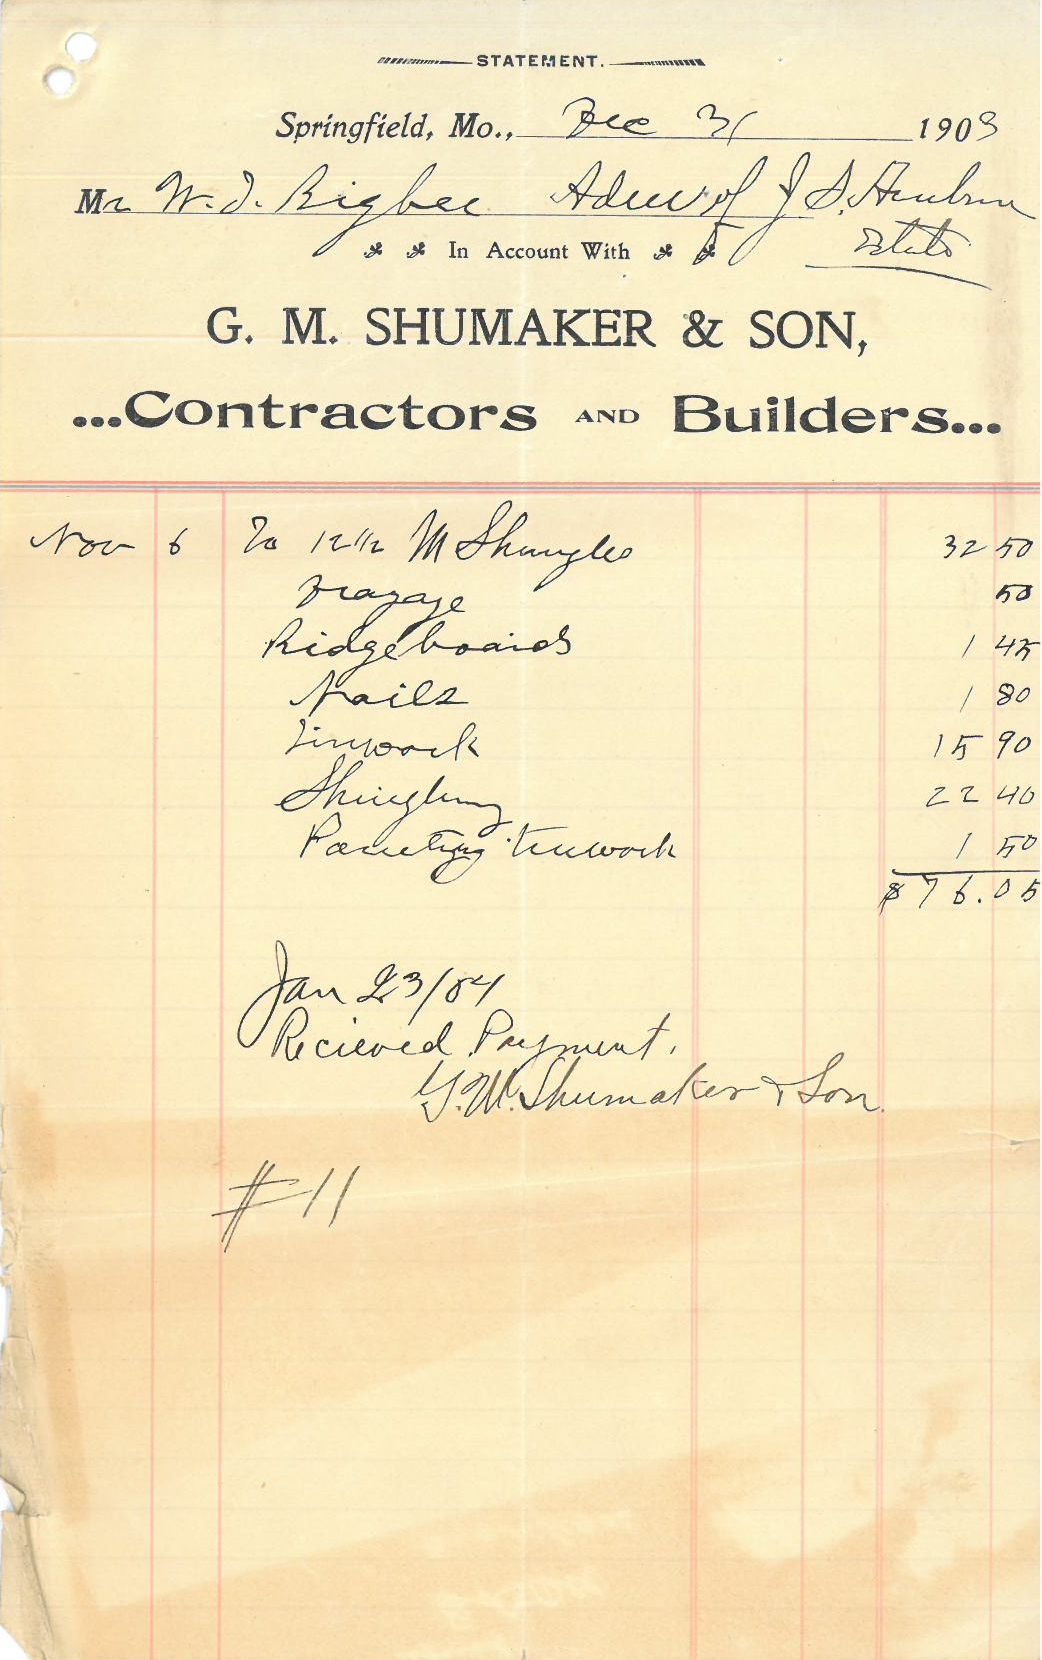 STATEMENT.
Springfield, Mo., Dec 31 1903
Mr W. I. Bigbee Adm of J S.
Estate
In Account With
G. M. SHUMAKER & SON,
...Contractors AND Builders...
Nov 6 To 12 1/2 M Shingles 32 50
Drayage 50
Ridgeboards 1 45
Nails 1 80
Tinwork 15 90
Shingling 22 40
Painting tinwork 1 50
$76.05
Jan 23/04
Recieved Payment.
G. M. Shumaker & Son.
#11